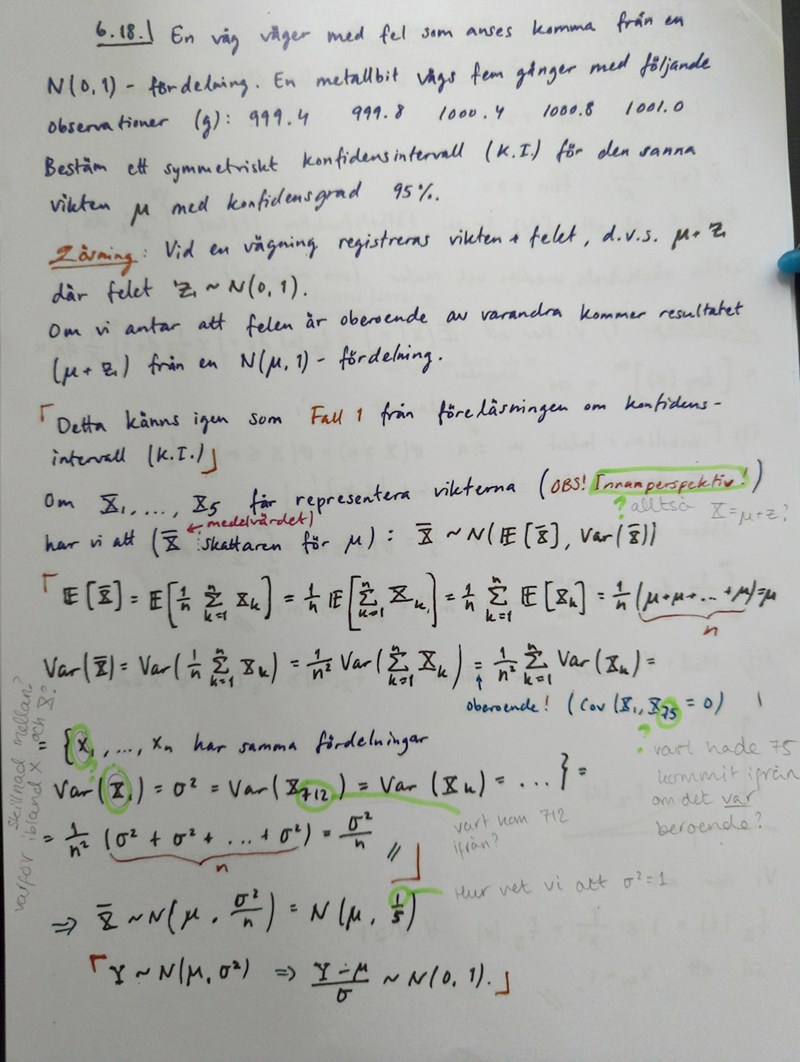 6.18. En våg väger med fel som anses komma från en
N(0,1) - fördelning. En metallbit vägs fem gånger med följande
observationer (g): 999.4 999.8 1000.4 1000.8 1001.0
Bestäm ett symmetriskt konfidensintervall (K.I.) för den sanna
vikten μ med konfidensgrad 95%.
Lösning: Vid en vägning registreras vikten + felet, d.v.s. μ + Z₁
där felet Z₁ ~ N(0,1).
Om vi antar att felen är oberoende av varandra kommer resultatet
(μ + Z₁) från en N(μ,1) - fördelning.
⌈Detta känns igen som Fall 1 från föreläsningen om konfidens-
intervall (K.I.)⌋
Om X₁, ..., X₅ får representera vikterna (OBS! Innanperspektiv!)
? alltså X = μ + z?
medelvärdet)
har vi att (X̄ skattaren för μ): X̄ ~ N(E[X̄], Var(X̄))
⌈E[X̄] = E[1/n Σₖ₌₁ⁿ Xₖ] = 1/n E[Σₖ₌₁ⁿ Xₖ] = 1/n Σₖ₌₁ⁿ E[Xₖ] = 1/n (μ+μ+..+μ) = μ
n
Var(X̄) = Var(1/n Σₖ₌₁ⁿ Xₖ) = 1/n² Var(Σₖ₌₁ⁿ Xₖ) = 1/n² Σₖ₌₁ⁿ Var(Xₖ) =
oberoende! (Cov(X₁, X₇₅ = 0)
= {x₁, ..., xₙ har samma fördelningar
Var(X₁) = σ² = Var(X₇₁₂) = Var(Xₖ) = ...} =
? vart hade 75
kommit ifrån
om det var
beroende?
varför ibland X och X?
skillnad mellan?
?
= 1/n² (σ² + σ² + ... + σ²) = σ²/n //⌋
n
vart kom 712
ifrån?
Hur vet vi att σ²=1
⇒ X̄ ~ N(μ, σ²/n) = N(μ, 1/5)
⌈Y ~ N(μ, σ²) ⇒ (Y - μ)/σ ~ N(0,1).⌋